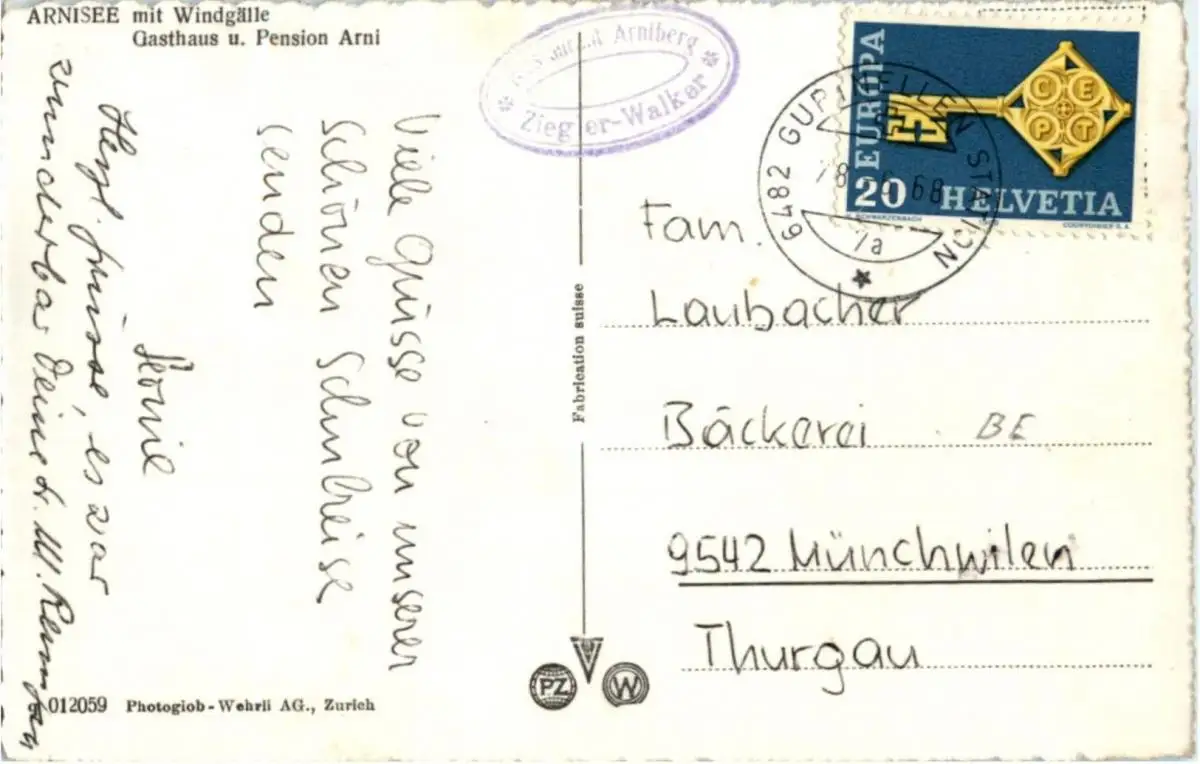 ARNISEE mit Windgälle
Gasthaus u. Pension Arni
Arniberg
Ziegler-Walker
6482 GURTNELLEN STATION
68
1a
EUROPA
CEPT
20 HELVETIA
H. SCHWARZENBACH
COURVOISIER S.A.
Viele Grüsse von unserer
schönen Schulreise
senden
Herzl. Grüsse, es war
wunderbar Deine
Fabrication suisse
Fam.
Laubacher
Bäckerei BE
9542 Münchwilen
Thurgau
PZ
W
012059 Photoglob-Wehrli AG., Zurich